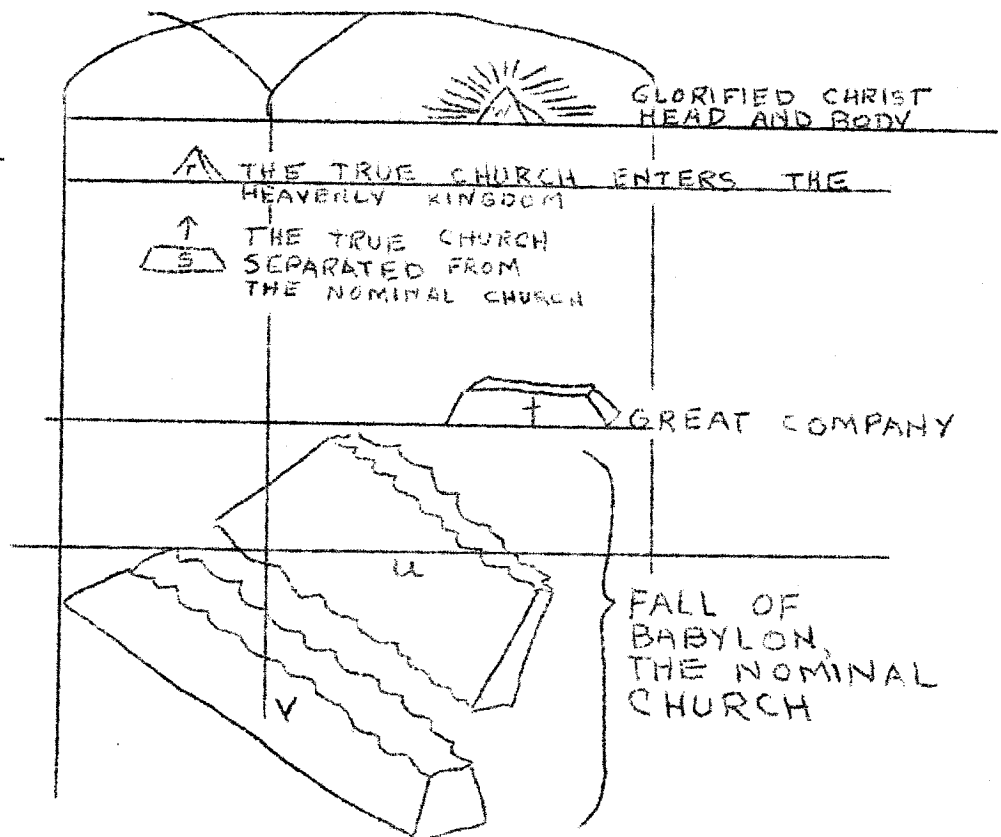 GLORIFIED CHRIST
HEAD AND BODY
W
r
THE TRUE CHURCH ENTERS THE
HEAVENLY KINGDOM
S
THE TRUE CHURCH
SEPARATED FROM
THE NOMINAL CHURCH
t
GREAT COMPANY
u
FALL OF
BABYLON,
THE NOMINAL
CHURCH
V